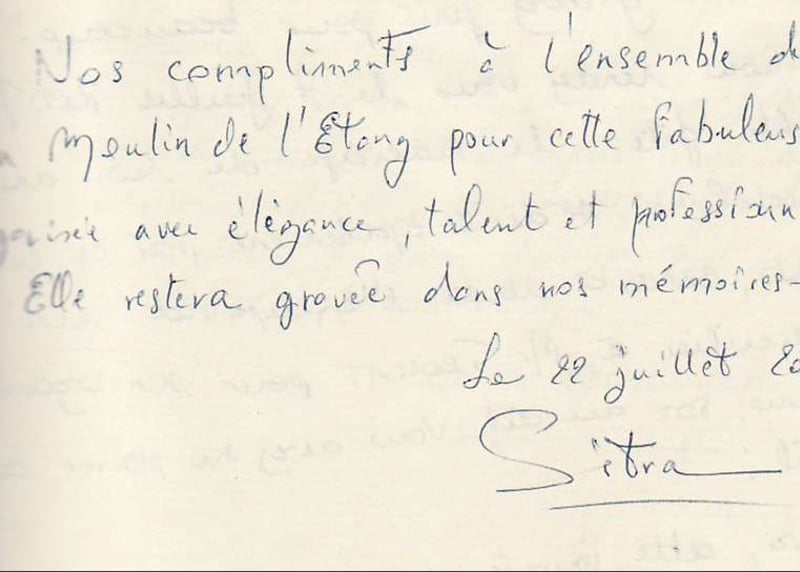 Nos compliments à l'ensemble d
Moulin de l'Étang pour cette fabuleus
avec élégance, talent et professionn
Elle restera gravée dans nos mémoires-
Le 22 juillet 20
Sitra